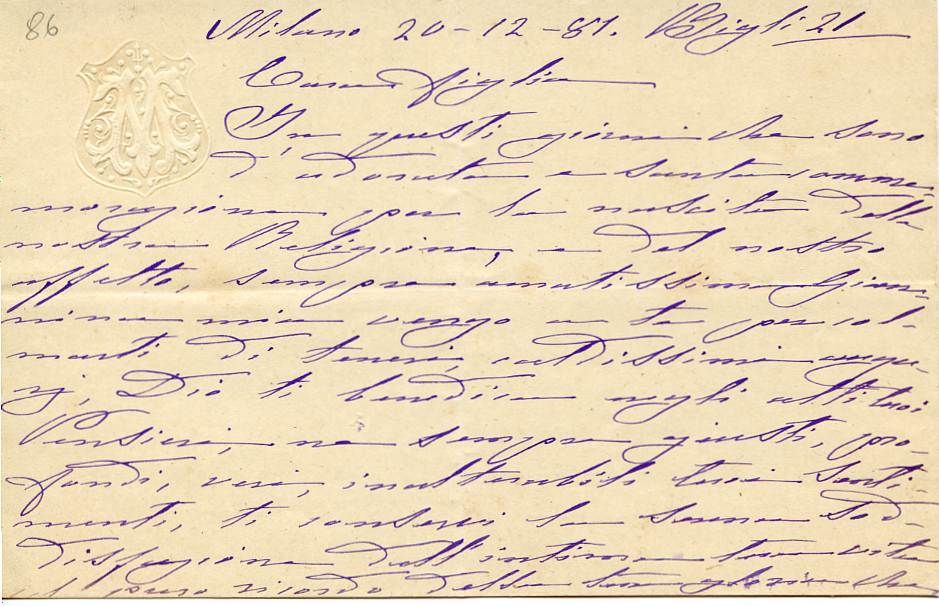 86
Milano 20-12-81. Bigli 21
Cara figlia
In questi giorni che sono
d'adorata e santa comme-
morazione per la nascita della
nostra Religione, e del nostro
affetto, sempre amatissima Gian-
nina mia vengo a te per col-
marti di teneri, caldissimi augu-
rj, Dio ti benedica negli atti tuoi
Pensieri, ne sempre giusti, pro-
fondi, veri, inalterabili tuoi Senti-
menti, ti conservi la serena Sod-
disfazione dell'intima tua vita
il puro ricordo della tua gloria che